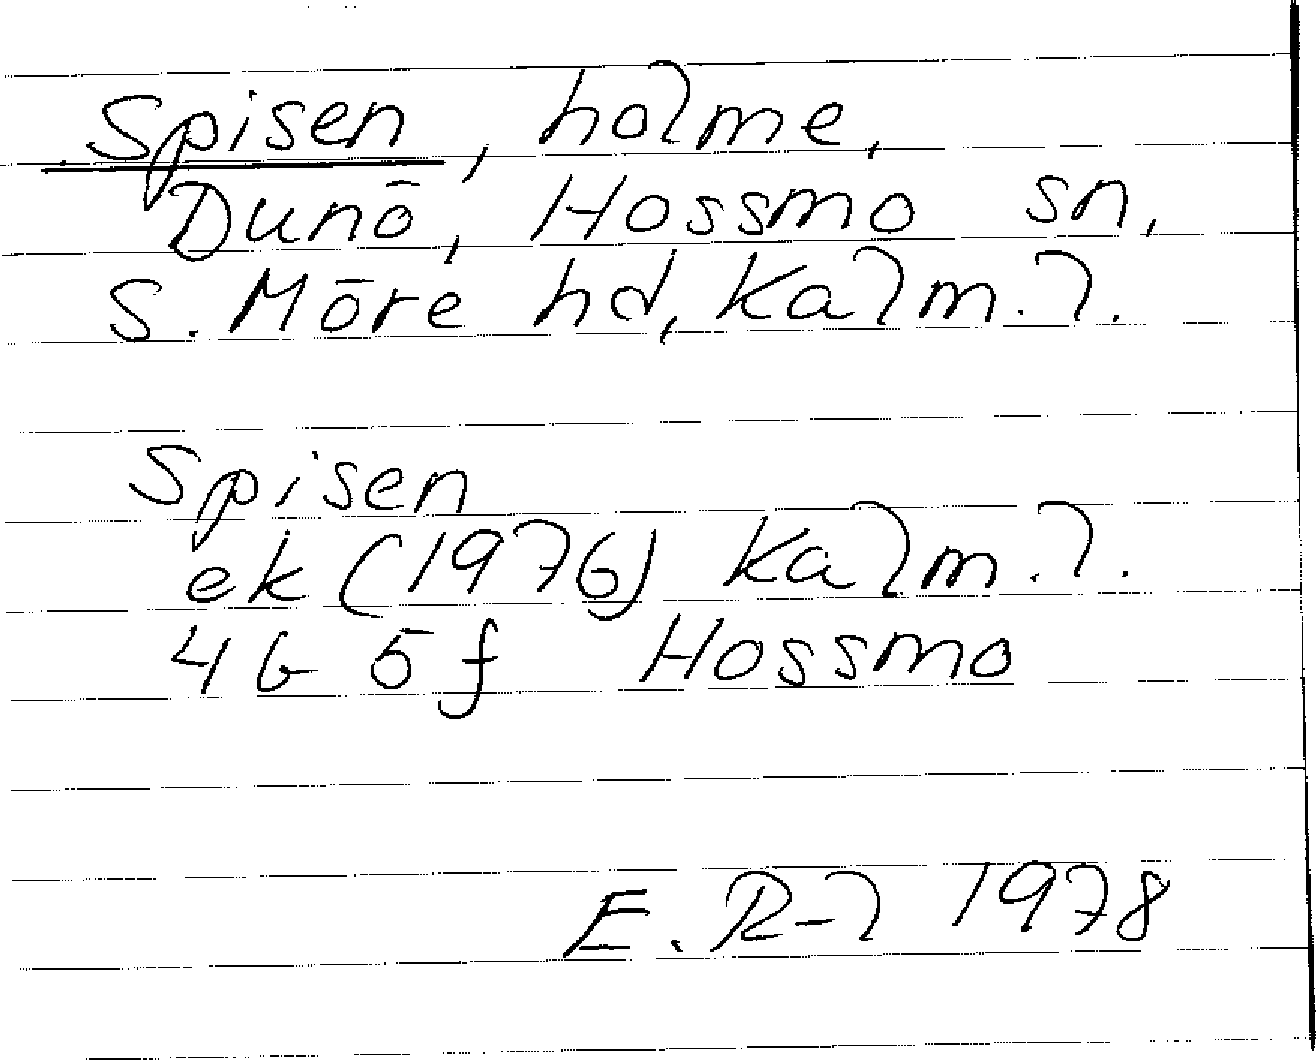 Spisen, holme,
Dunö, Hossmo sn,
S. Möre hd, Kalm. l.
Spisen
ek (1976) Kalm. l.
4G 5f Hossmo
E. R-l 1978